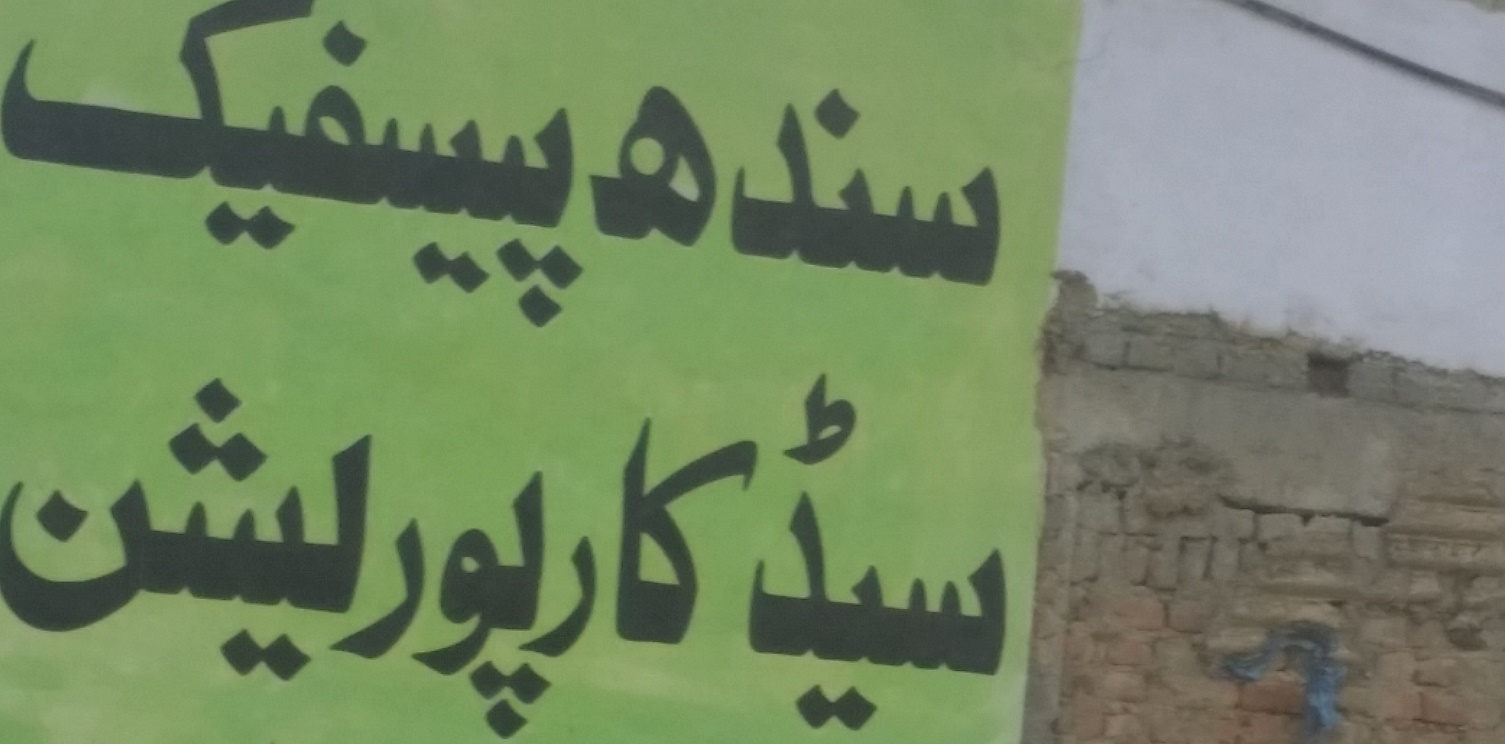 سندھ پیسفیک
سیڈ کارپوریشن